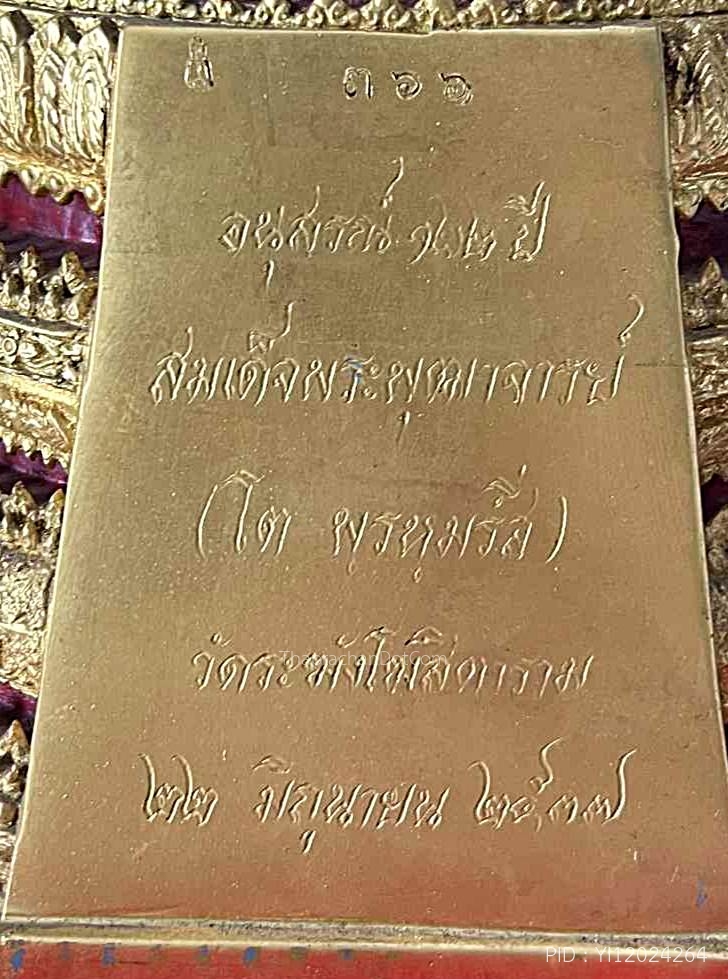 ๓๖๖
อนุสรณ์ ๑๒๒ ปี
สมเด็จพระพุฒาจารย์
(โต พฺรหฺมรํสี)
วัดระฆังโฆสิตาราม
๒๒ มิถุนายน ๒๕๓๗
ThaprachanDotCom
PID : YI12024264